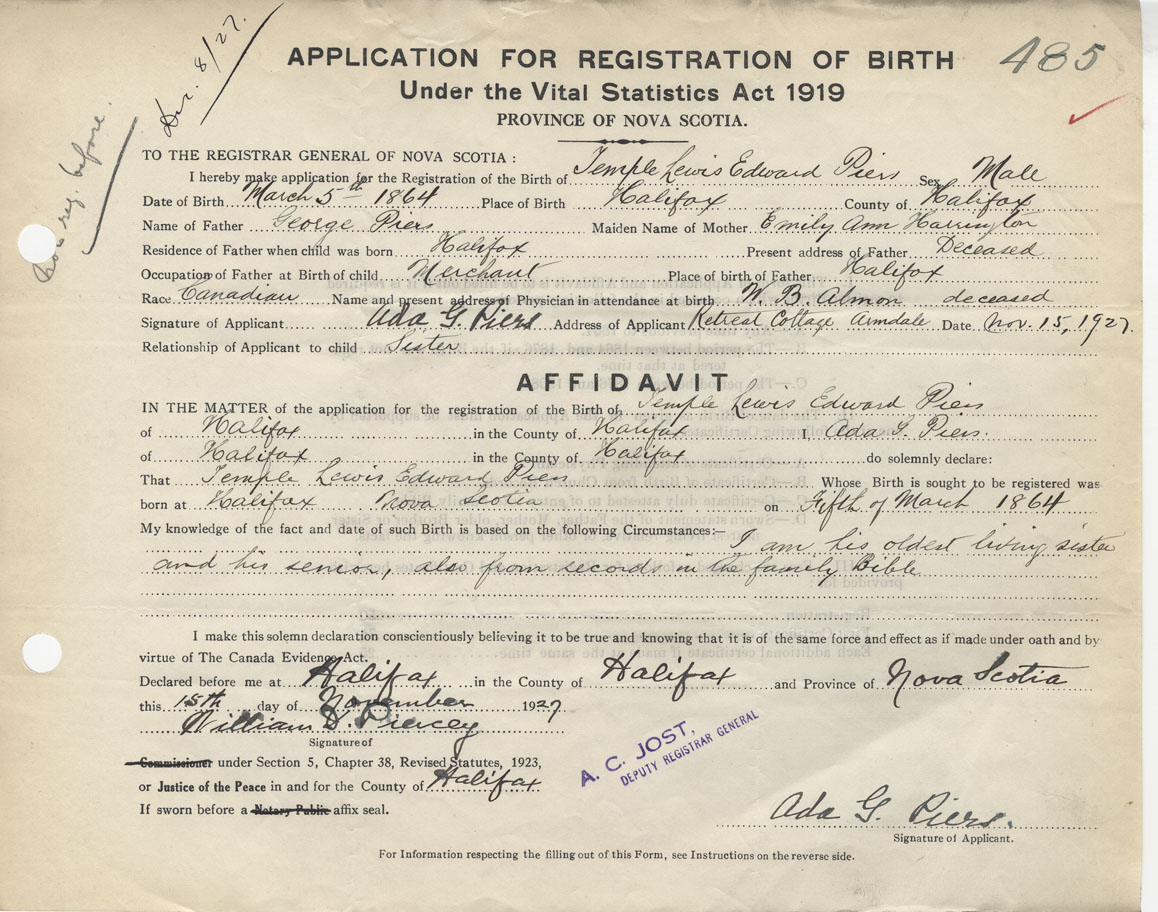 Dec. 8/27.
not reg. before.
APPLICATION FOR REGISTRATION OF BIRTH 485
Under the Vital Statistics Act 1919
PROVINCE OF NOVA SCOTIA.
TO THE REGISTRAR GENERAL OF NOVA SCOTIA :
I hereby make application for the Registration of the Birth of Temple Lewis Edward Piers Sex Male
Date of Birth March 5th 1864 Place of Birth Halifax County of Halifax
Name of Father George Piers Maiden Name of Mother Emily Ann Harrington
Residence of Father when child was born Halifax Present address of Father Deceased
Occupation of Father at Birth of child Merchant Place of birth of Father Halifax
Race Canadian Name and present address of Physician in attendance at birth W. B. Almon deceased
Signature of Applicant Ada G. Piers Address of Applicant Retreat Cottage Armdale Date Nov. 15, 1927.
Relationship of Applicant to child Sister
AFFIDAVIT
IN THE MATTER of the application for the registration of the Birth of Temple Lewis Edward Piers
of Halifax in the County of Halifax I, Ada G. Piers.
of Halifax in the County of Halifax do solemnly declare:
That Temple Lewis Edward Piers Whose Birth is sought to be registered was
born at Halifax Nova Scotia on Fifth of March 1864
My knowledge of the fact and date of such Birth is based on the following Circumstances:— I am his oldest living sister
and his senior, also from records in the family Bible
I make this solemn declaration conscientiously believing it to be true and knowing that it is of the same force and effect as if made under oath and by
virtue of The Canada Evidence Act.
Declared before me at Halifax in the County of Halifax and Province of Nova Scotia
this 15th day of November 1927
William D. Piercey
Signature of
Commissioner under Section 5, Chapter 38, Revised Statutes, 1923,
or Justice of the Peace in and for the County of Halifax
If sworn before a Notary Public affix seal.
A. C. JOST,
DEPUTY REGISTRAR GENERAL
Ada G. Piers.
Signature of Applicant.
For Information respecting the filling out of this Form, see Instructions on the reverse side.